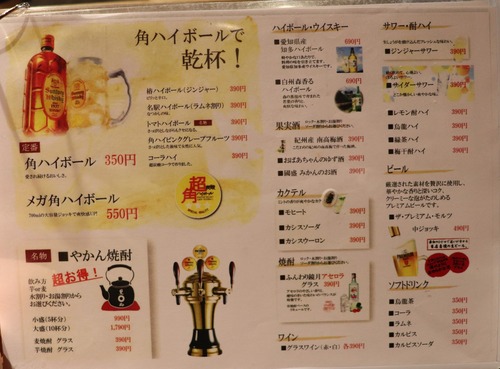 角ハイボールで
乾杯！
椿ハイボール（ジンジャー） 390円
名駅ハイボール（ラムネ割り） 390円
トマトハイボール 390円
角ハイピンクグレープフルーツ 390円
コーラハイ 390円
定番
角ハイボール 350円
愛され続けるおいしさ。
メガ角ハイボール 550円
超角
名物
■やかん焼酎
超お得！
飲み方
芋or麦
水割り・お湯割りから
お選びください。
小盛(5杯分) 990円
大盛(10杯分) 1,790円
麦焼酎 グラス 390円
芋焼酎 グラス 390円
ハイボール・ウイスキー
■愛知県産 690円
知多ハイボール
■白州森香る 690円
ハイボール
果実酒
紀州産 南高梅酒 390円
■おばあちゃんのゆず酒 390円
■國盛 みかんのお酒 390円
カクテル
■モヒート 390円
■カシスソーダ 390円
■カシスウーロン 390円
焼酎
■ふんわり鏡月アセロラ
グラス 390円
ワイン
■グラスワイン(赤・白) 各390円
サワー・酎ハイ
■ジンジャーサワー 390円
■サイダーサワー 390円
■レモン酎ハイ 390円
■烏龍ハイ 390円
■緑茶ハイ 390円
■梅干酎ハイ 390円
ビール
厳選された素材を贅沢に使用し、
華やかな香りと深いコク、
クリーミーな泡がたのしめる
プレミアムビールです。
■ザ・プレミアム・モルツ
中ジョッキ 490円
ソフトドリンク
■烏龍茶 350円
■コーラ 350円
■ラムネ 350円
■カルピス 350円
■カルピスソーダ 350円